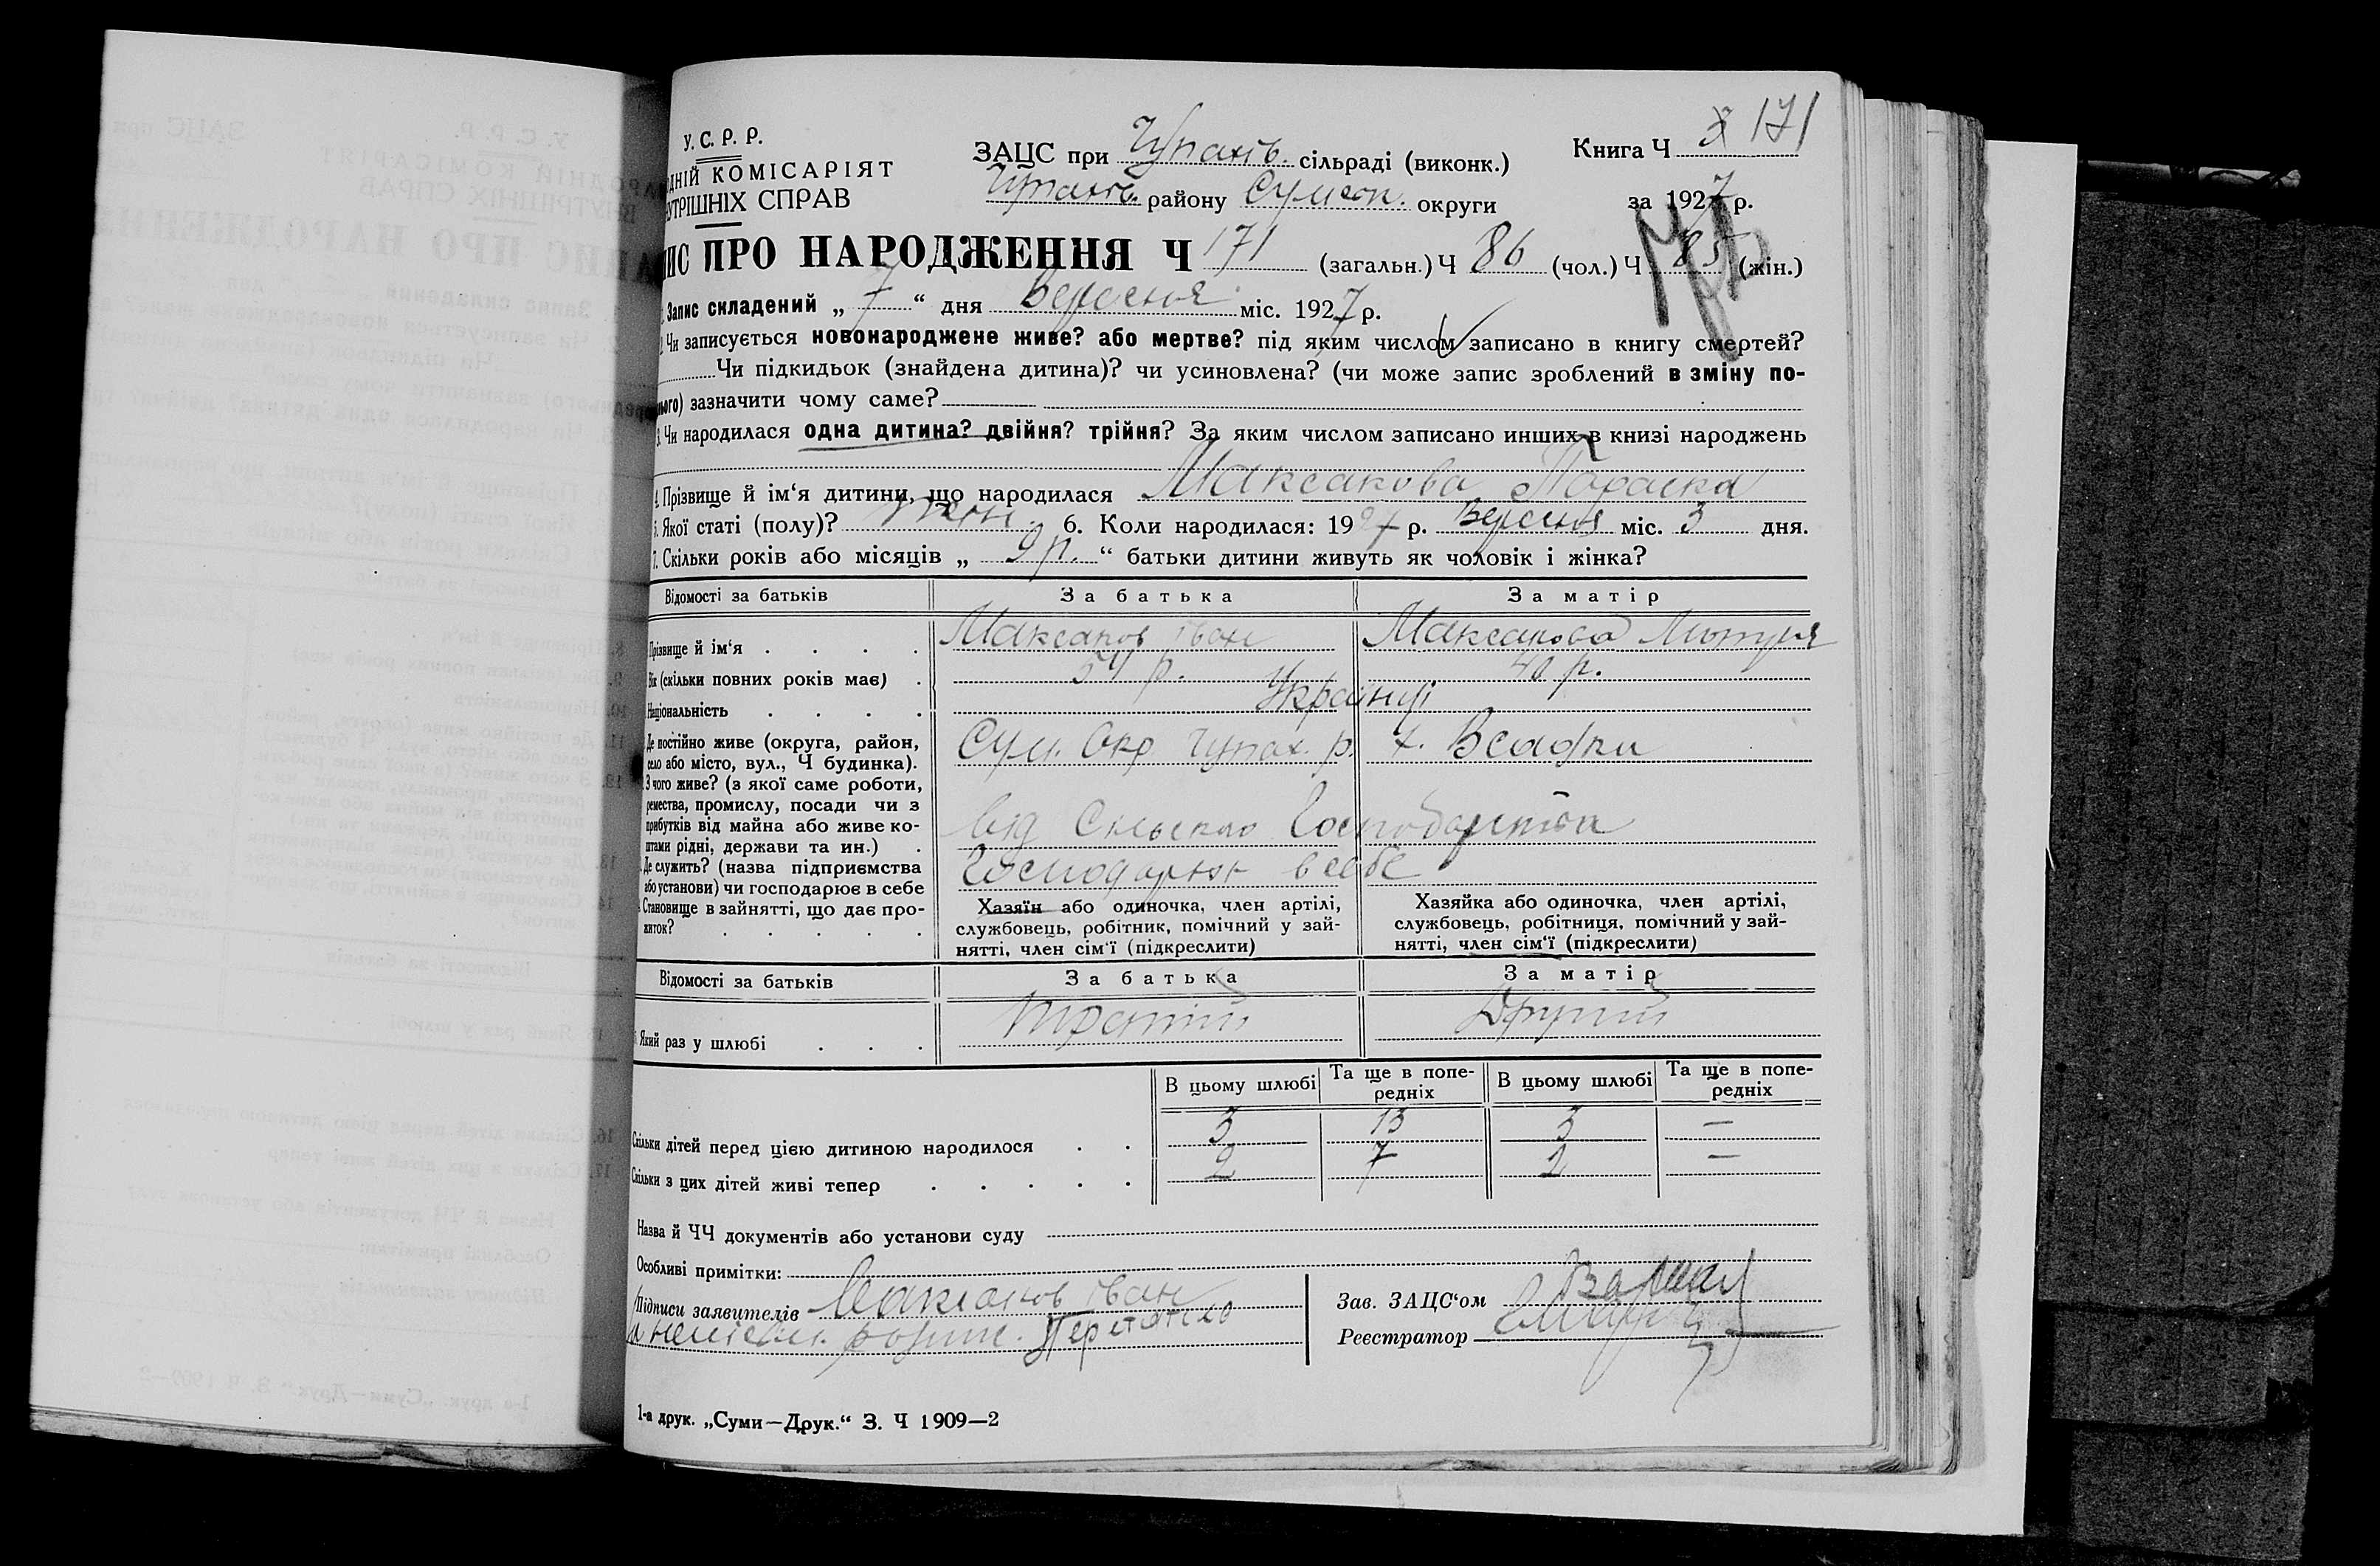 У. С. Р. Р.
ДНІЙ КОМІСАРІЯТ
УТРІШНІХ СПРАВ
ЗАЦС при Чупахів. сільраді (виконк.)
Чупахів. району Сумськ. округи
Книга Ч 3 171
за 1927 р.
ИС ПРО НАРОДЖЕННЯ Ч 171 (загальн.) Ч 86 (чол.) Ч 85 (жін.)
1. Запис складений „ 7 “ дня Вересня міс. 1927 р.
2. Чи записується новонароджене живе? або мертве? під яким числом записано в книгу смертей?
Чи підкидьок (знайдена дитина)? чи усиновлена? (чи може запис зроблений в зміну по-
нього) зазначити чому саме?
3. Чи народилася одна дитина? двійня? трійня? За яким числом записано инших в книзі народжень
4. Прізвище й ім‘я дитини, що народилася Максакова Параска
5. Якої статі (полу)? жін. 6. Коли народилася: 1927 р. Вересня міс. 3 дня.
7. Скільки років або місяців „ 9 р. “ батьки дитини живуть як чоловік і жінка?
Відомості за батьків За батька За матір
Прізвище й ім‘я Максаков Іван Максакова Мотря
Вік (скільки повних років має) 54 р. 40 р.
Національність Українці
Де постійно живе (округа, район,
село або місто, вул., Ч будинка).
Сум. Окр Чупах. р. х.
З чого живе? (з якої саме роботи,
ремества, промислу, посади чи з
прибутків від майна або живе ко-
штами рідні, держави та ин.)
Від Сільсько Господарства
Де служить? (назва підприємства
або установи) чи господарює в себе
Господарюють в себе
Становище в зайнятті, що дає про-
житок?
Хазяїн або одиночка, член артілі,
службовець, робітник, помічний у зай-
нятті, член сім‘ї (підкреслити)
Хазяйка або одиночка, член артілі,
службовець, робітниця, помічний у зай-
нятті, член сім‘ї (підкреслити)
Відомості за батьків За батька За матір
Який раз у шлюбі Третій Другий
В цьому шлюбі Та ще в попе-
редніх В цьому шлюбі Та ще в попе-
редніх
Скільки дітей перед цією дитиною народилося 3 13 3 —
Скільки з цих дітей живі тепер 2 7 2 —
Назва й ЧЧ документів або установи суду
Особливі примітки:
Підписи заявителів Максаков Іван
Зав. ЗАЦС‘ом
Реєстратор
1-а друк. „Суми—Друк.“ З. Ч 1909—2